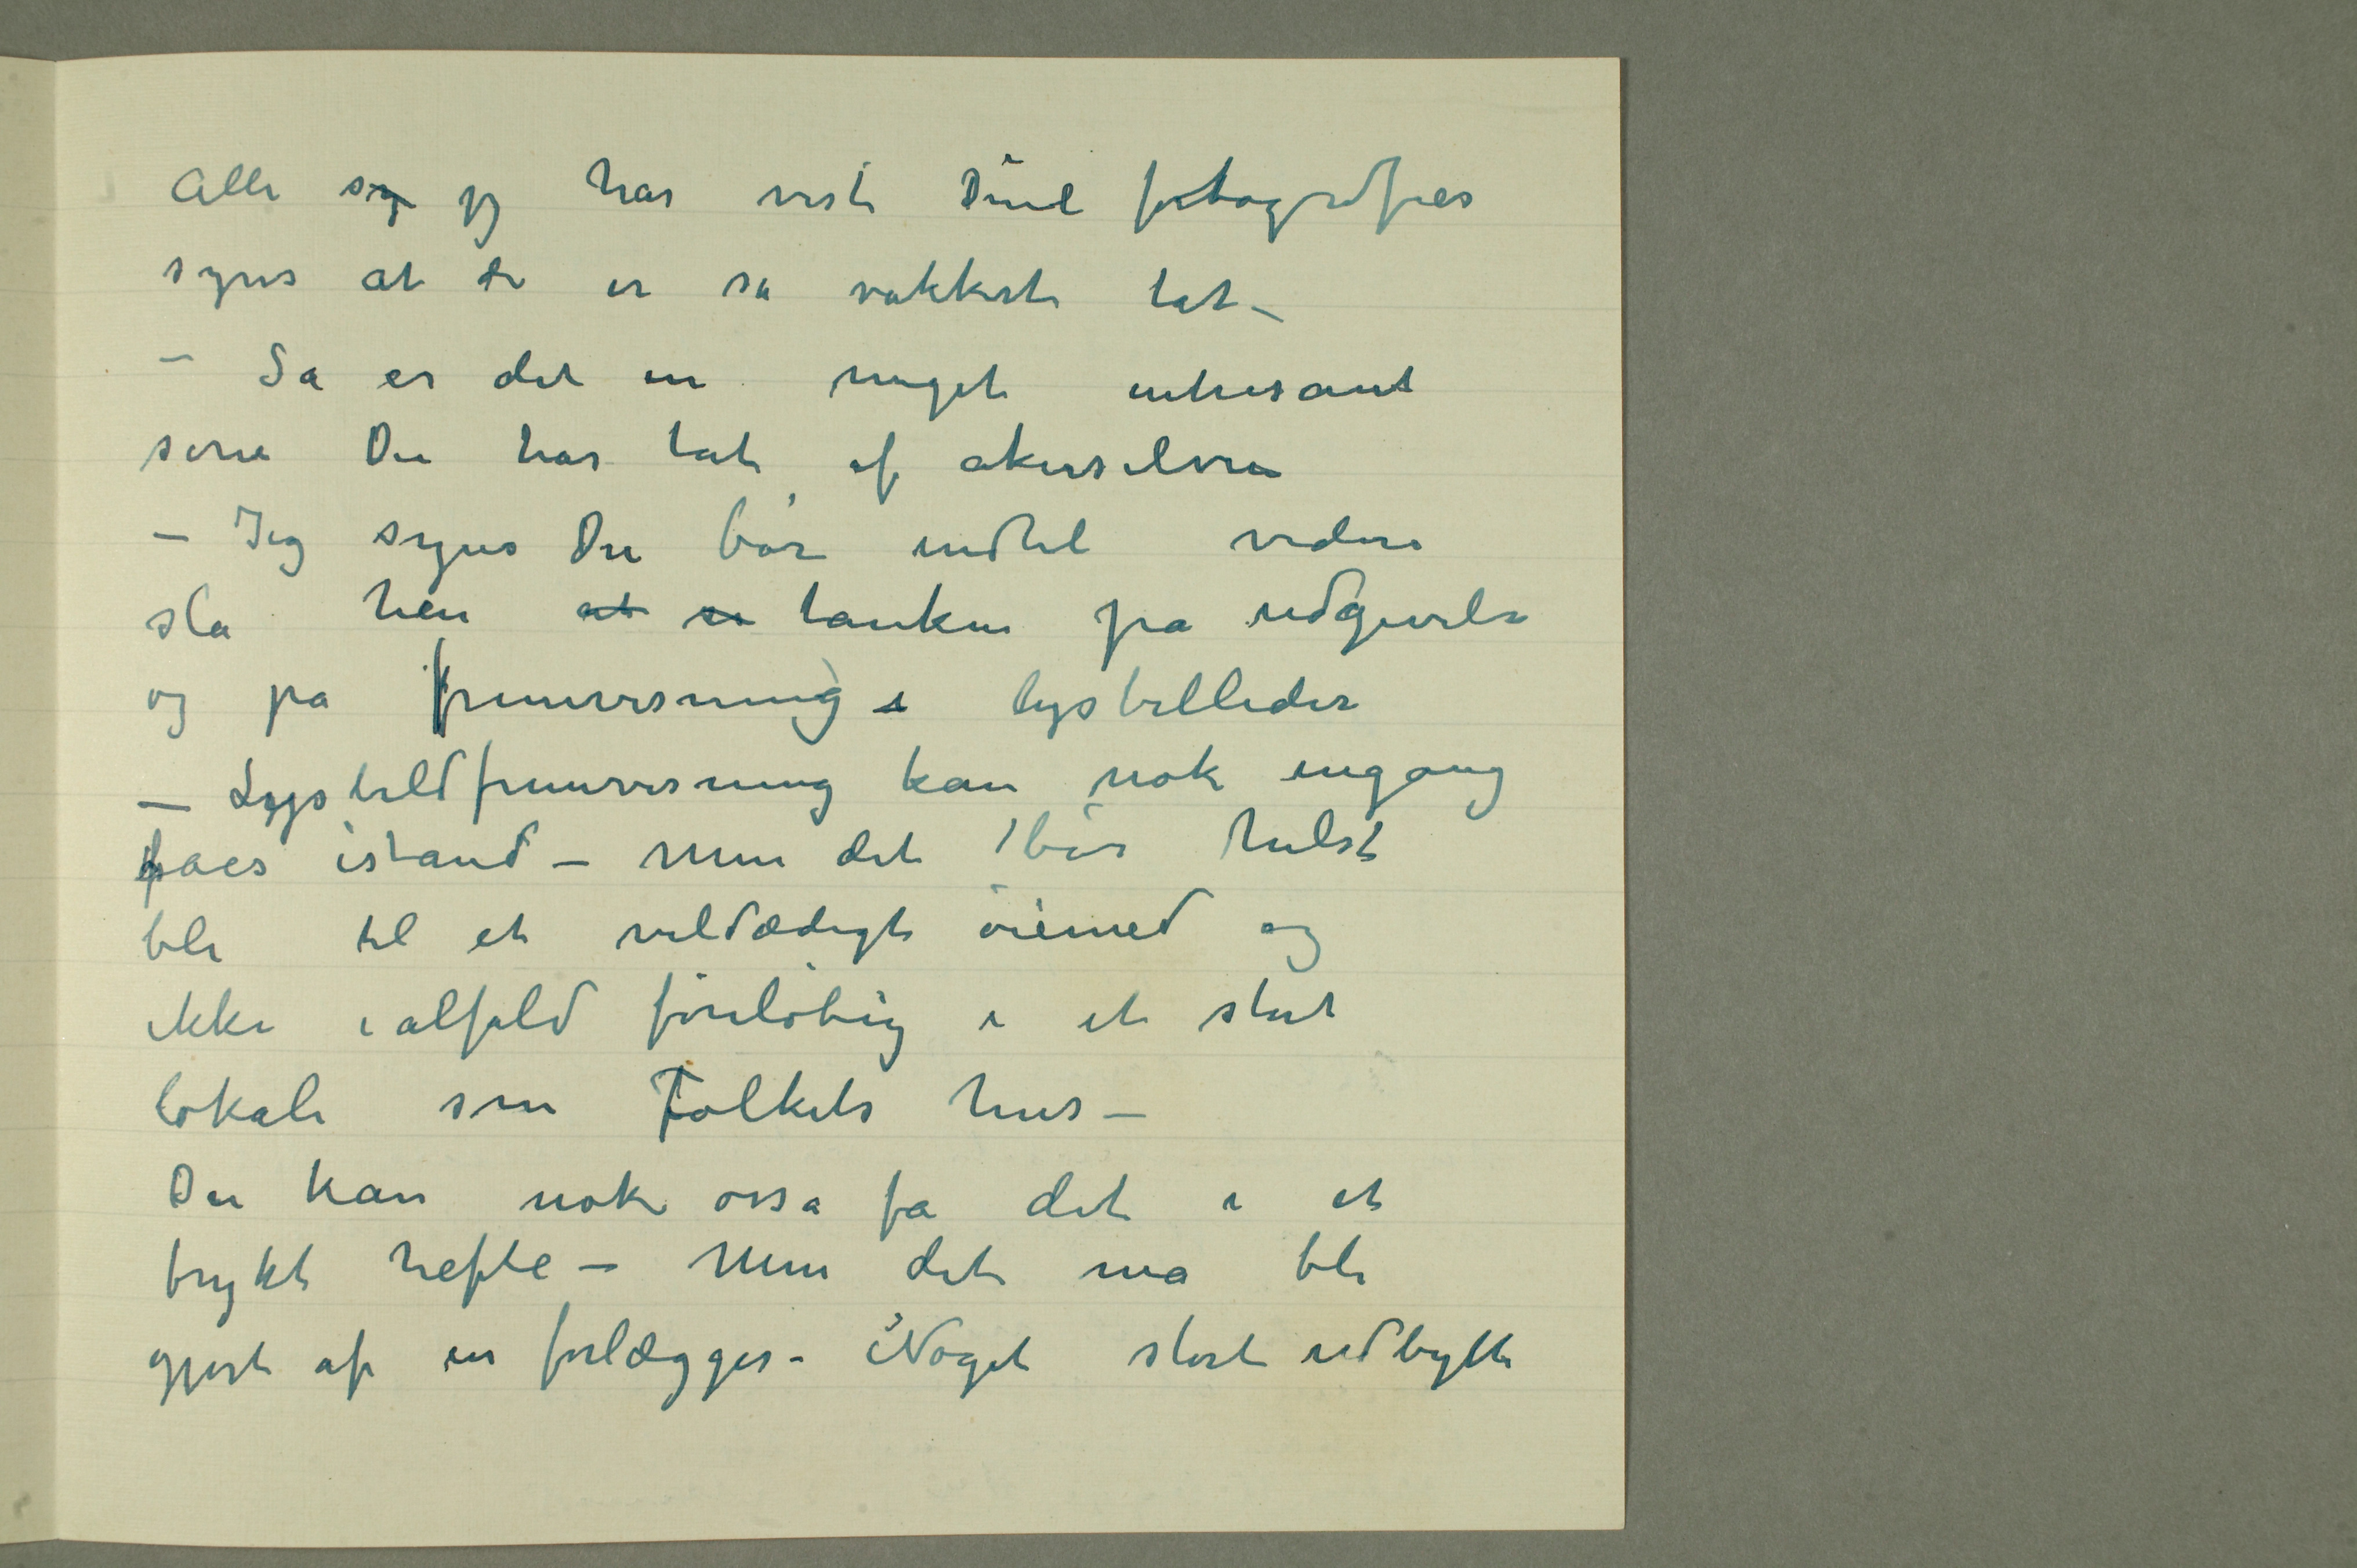 Alle sy jeg har vist Dine fotografier
synes at de er så vakkert tat –
– Så er det en meget intresant
serie Du har tat af akerselven
– Jeg synes Du bør indtil videre
slå hen at se tanken på udgivelse
og på fremvisning i lysbilleder
– Lysbildfremvisning kan nok engang
fåes istand – Men det bør helst
bli til et veldædigt øiemed og
ikke ialfald foreløbig i et stort
lokale som Folkets hus –
Du kan nok osså få det i et
trykt hefte – Men det må bli
gjort af en forlægger – Noget stort udbytte